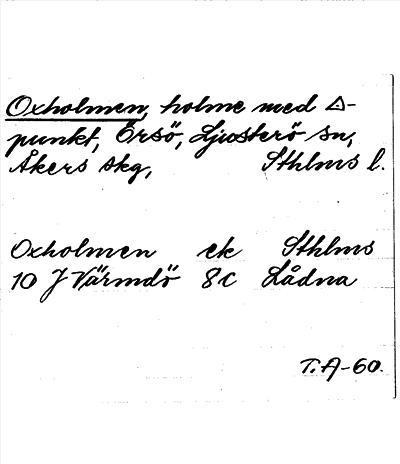 Oxholmen, holme med △-
punkt, Örsö, Ljusterö sn,
Åkers skg, Sthlms l.
Oxholmen ek Sthlms
10 J Värmdö 8c Lådna
T.A-60.